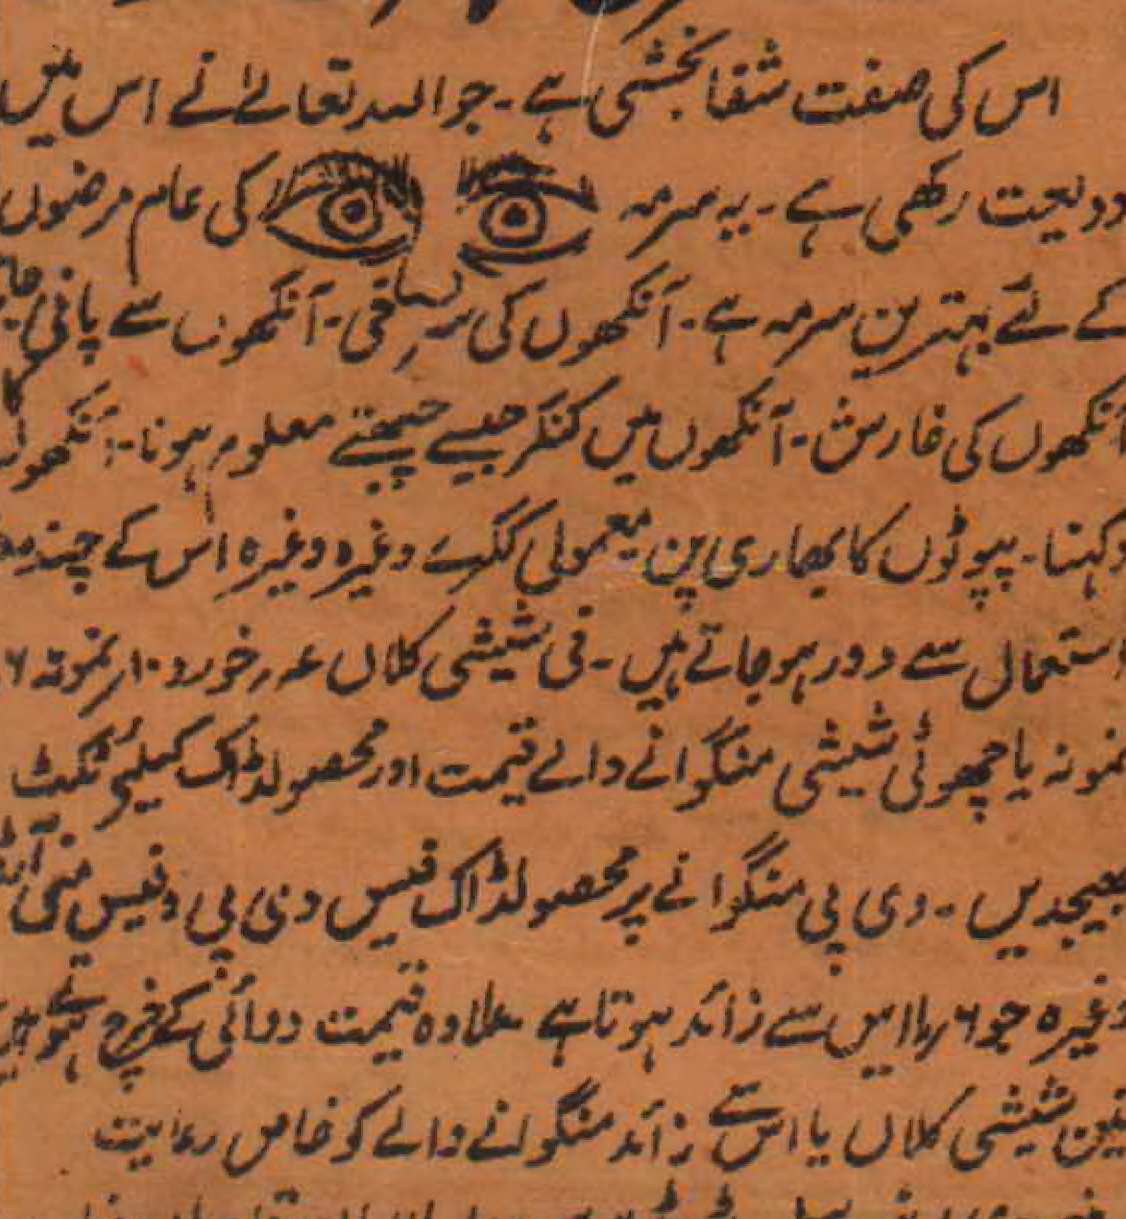 اس کی صفت شفا بخشی ہے ۔ جو اللہ تعالےٰ نے اس میں
ودیعت رکھی ہے ۔ یہ سرمہ کی عام مرضوں
کے لئے بہترین سرمہ ہے ۔ آنکھوں کی سرخی ۔ آنکھوں سے پانی
آنکھوں کی خارش ۔ آنکھوں میں کنکر جیسے چبھتے معلوم ہونا ۔ آنکھوں کا
دکہنا ۔ پپوٹوں کا بھاری پن معمولی ککرے وغیرہ وغیرہ اس کے چند
استعمال سے دور ہو جاتے ہیں ۔ فی شیشی کلاں عہ ر خورد ۱۰ر نمونہ ۶
نمونہ یا چھوٹی شیشی منگوانے والے قیمت اور محصولڈاک کیلیئے ٹکٹ
بھیجدیں ۔ وی پی منگوانے پر محصولڈاک فیس وی پی و فیس منی آرڈر
وغیرہ جو ۶ر یا اس سے زائد ہوتا ہے علاوہ قیمت دوائی کے خرچ ہوتے ہیں
تین شیشی کلاں یا اس سے زائد منگوانے والے کو خاص رعایت